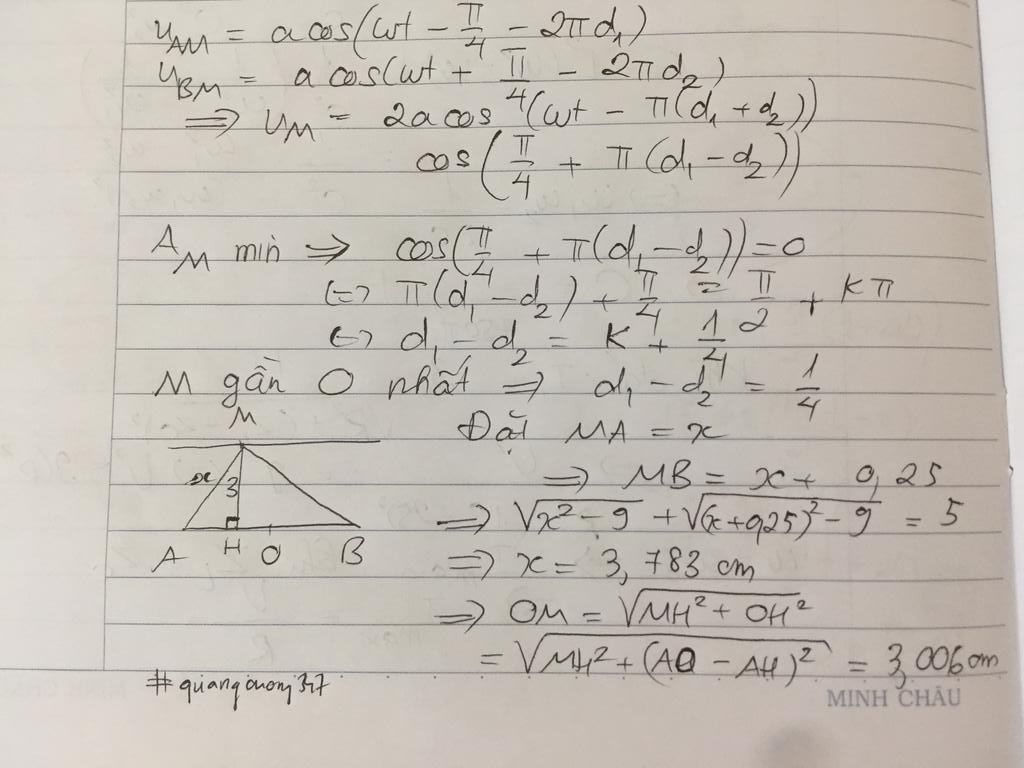 u_AM = a cos(ωt - π/4 - 2πd₁)
u_BM = a cos(ωt + π/4 - 2πd₂)
⟹ u_M = 2a cos(ωt - π(d₁ + d₂))
cos(π/4 + π(d₁ - d₂))
A_M min ⟹ cos(π/4 + π(d₁ - d₂)) = 0
⟺ π(d₁ - d₂) + π/4 = π/2 + Kπ
⟺ d₁ - d₂ = K + 1/4
M gần O nhất ⟹ d₁ - d₂ = 1/4
Đặt MA = x
⟹ MB = x + 0,25
⟹ √(x² - 9) + √((x + 0,25)² - 9) = 5
⟹ x = 3,783 cm
⟹ OM = √(MH² + OH²)
= √(MH² + (AO - AH)²) = 3,006 cm
M
x 3
A H O B
#quangcuong347
MINH CHÂU